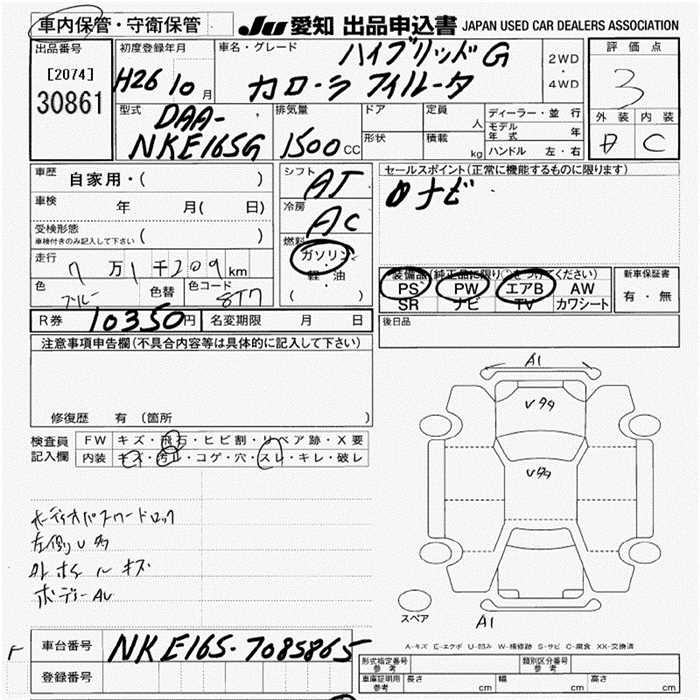 車内保管・守衛保管 JU 愛知 出品申込書 JAPAN USED CAR DEALERS ASSOCIATION
出品番号
[2074]
30861
初度登録年月
H26 10月
車名・グレード
ハイブリッドG
カローラ フィルータ
2WD
・
4WD
評価点
3
外装 内装
D C
型式
DAA-
NKE165G
排気量
1500CC
ドア
形状
定員
人
積載
kg
ディーラー・並行
モデル年式 年
ハンドル 左・右
車歴
自家用・( )
車検 年 月( 日)
受検形態
車検付きのみ記入して下さい ( )
走行
7万1千209km
色 ブルー 色替 色コード 8T7
シフト
AT
冷房
AC
燃料
ガソリン
・
軽・油
( )
セールスポイント(正常に機能するものに限ります)
ナビ
装備品(純正品に限り○をつけてください)
PS PW エアB AW
SR ナビ TV カワシート
新車保証書
有・無
R券 10350円 名変期限 月 日
後日品
注意事項申告欄(不具合内容等は具体的に記入して下さい)
修復歴 有(箇所 )
検査員
記入欄
FW キズ・飛石・ヒビ割・リペア跡・X要
内装 キズ・汚れ・コゲ・穴・スレ・キレ・破レ
オーディオパスワードロック
左側U多
Aホイールキズ
ボディーAU
A1
U多々
U多々
A1
スペア
A-キズ E-エクボ U-凹み W-補修跡 S-サビ C-腐食 XX-交換済
F
車台番号 NKE165-7085865
登録番号
形式指定番号
参考
類別区分番号
参考
車庫証明用
参考
長さ cm 幅 cm 高さ cm